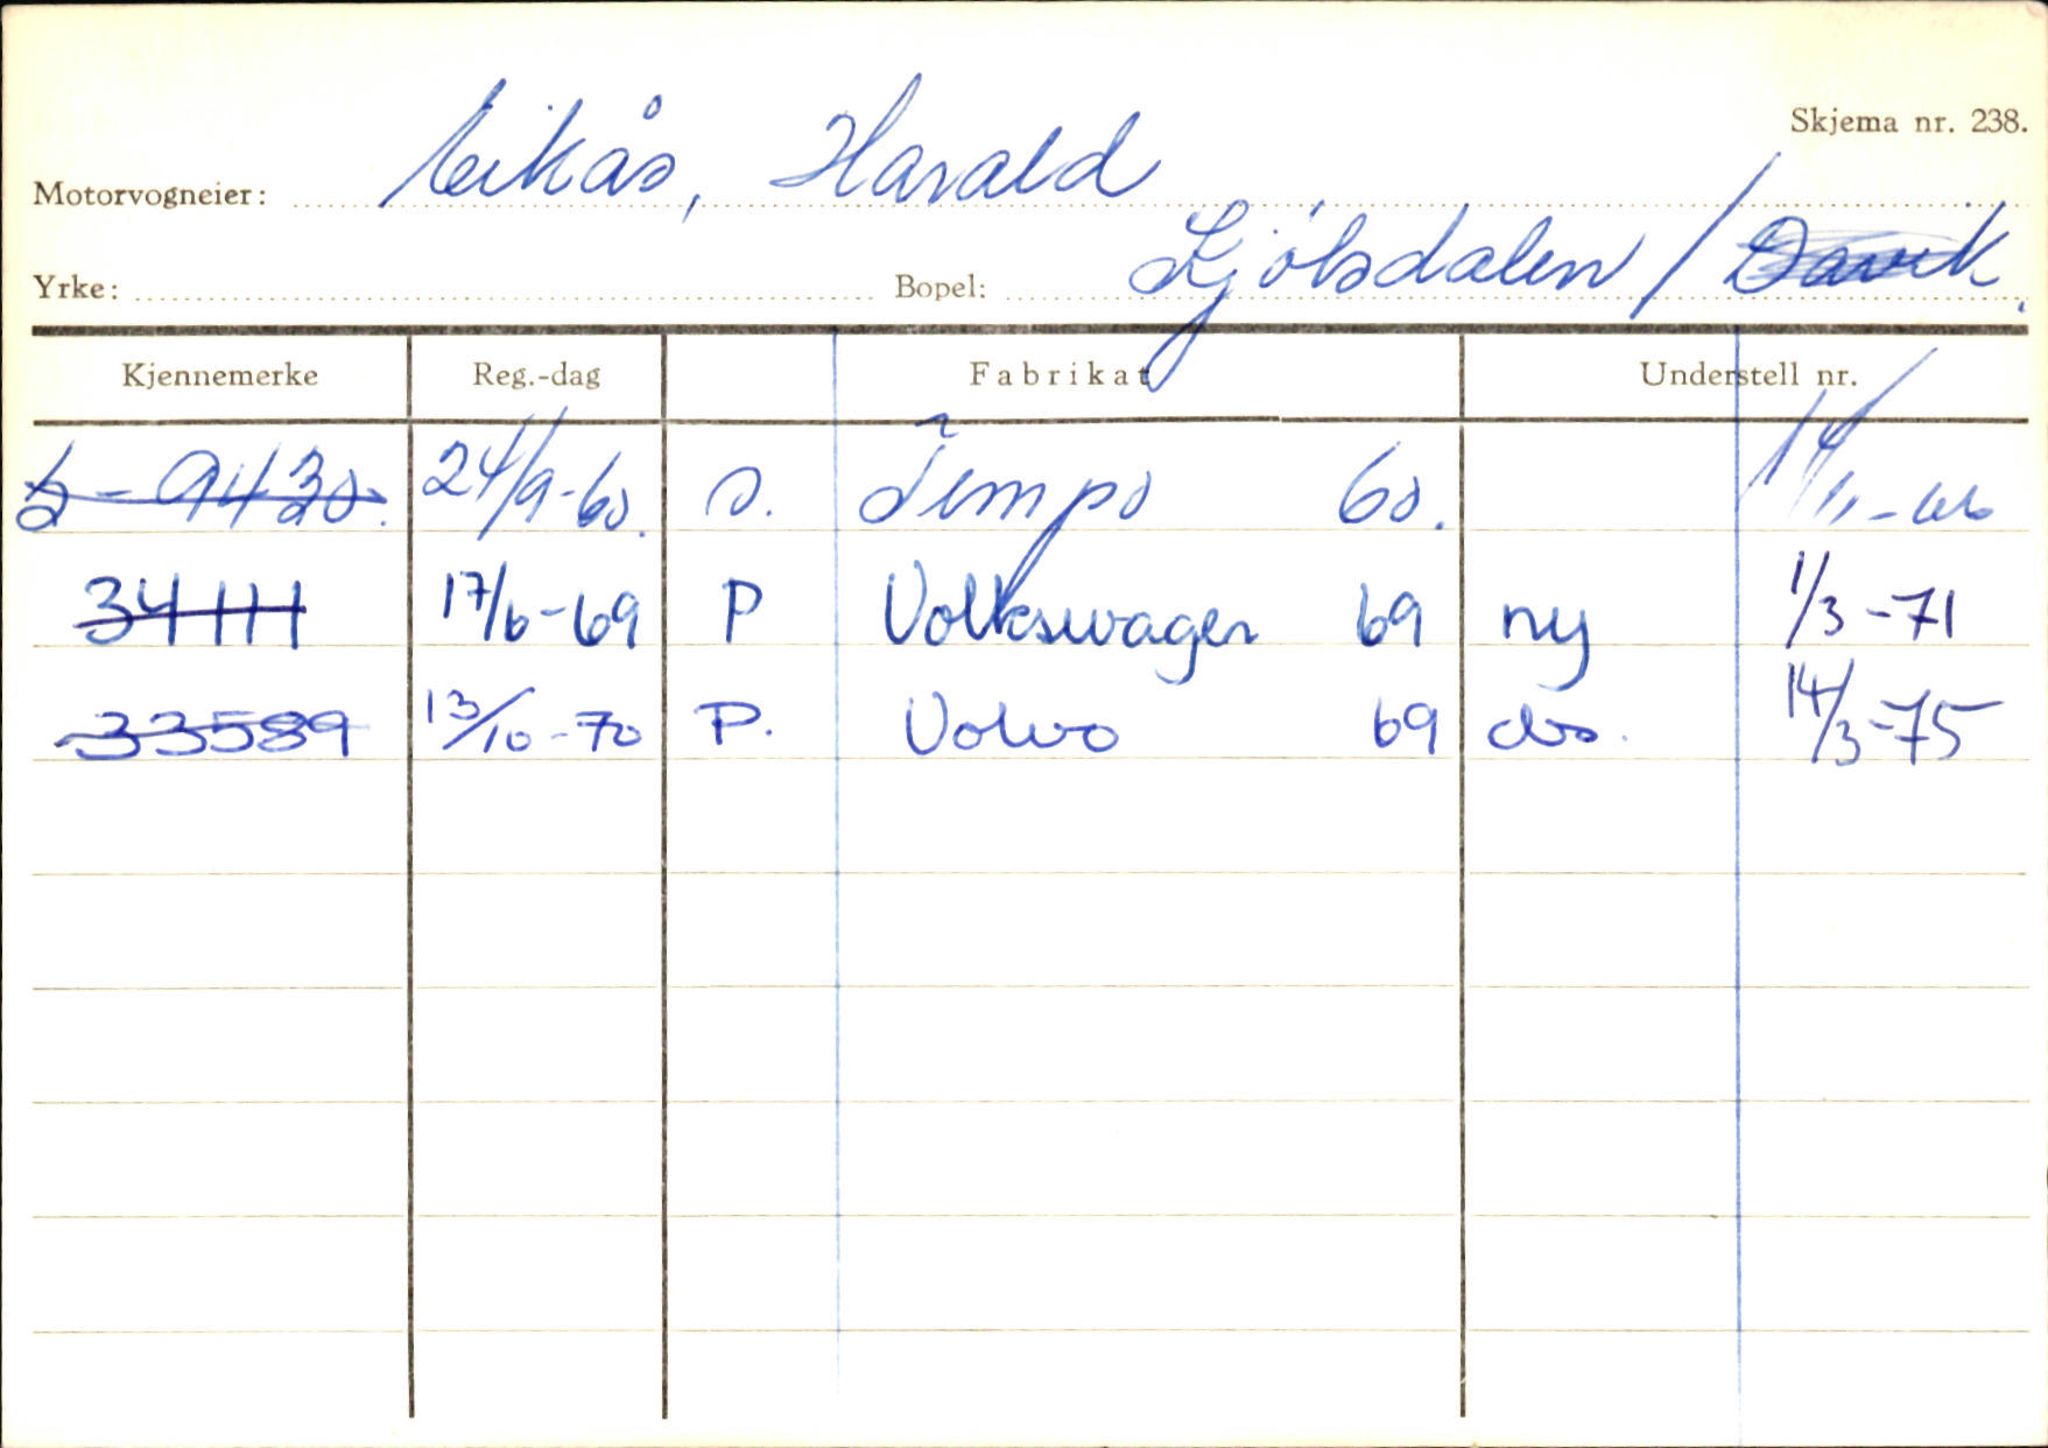 Skjema nr. 238.
Motorvogneier: Eikås, Harald
Yrke: Bopel: Kjölsdalen / Davik.
Kjennemerke Reg.-dag Fabrikat Understell nr.
S-9430. 24/9-60. s. Tempo 60. 14/11-66
34111 17/6-69 P Volkswagen 69 ny 1/3-71
33589 13/10-70 P. Volvo 69 14/3-75